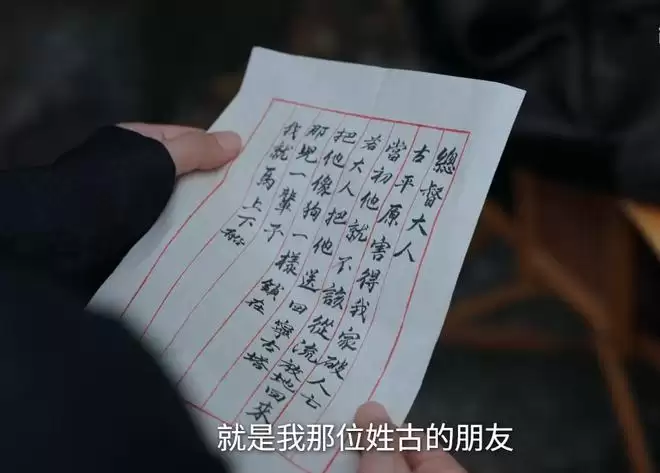 總督大人
古平原害得我家破人亡
當初他就不該從流放地回來
若大人把他送回寧古塔
把他像狗一樣鎖在
那兒一輩子
我就馬上不
就是我那位姓古的朋友